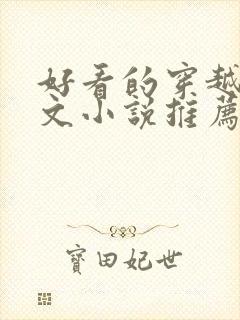 好看的穿越
文小说推薦
寶田妃世